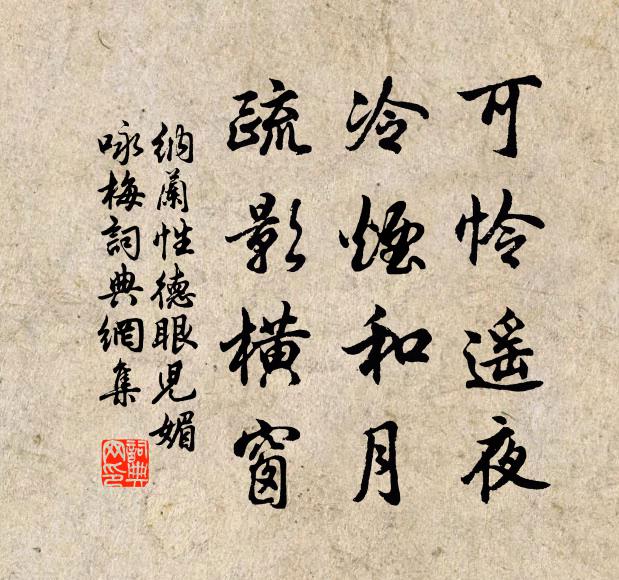 可怜遥夜
冷煙和月
疏影橫窗
納蘭性德眼兒媚
咏梅詞典網集
詞典
网印